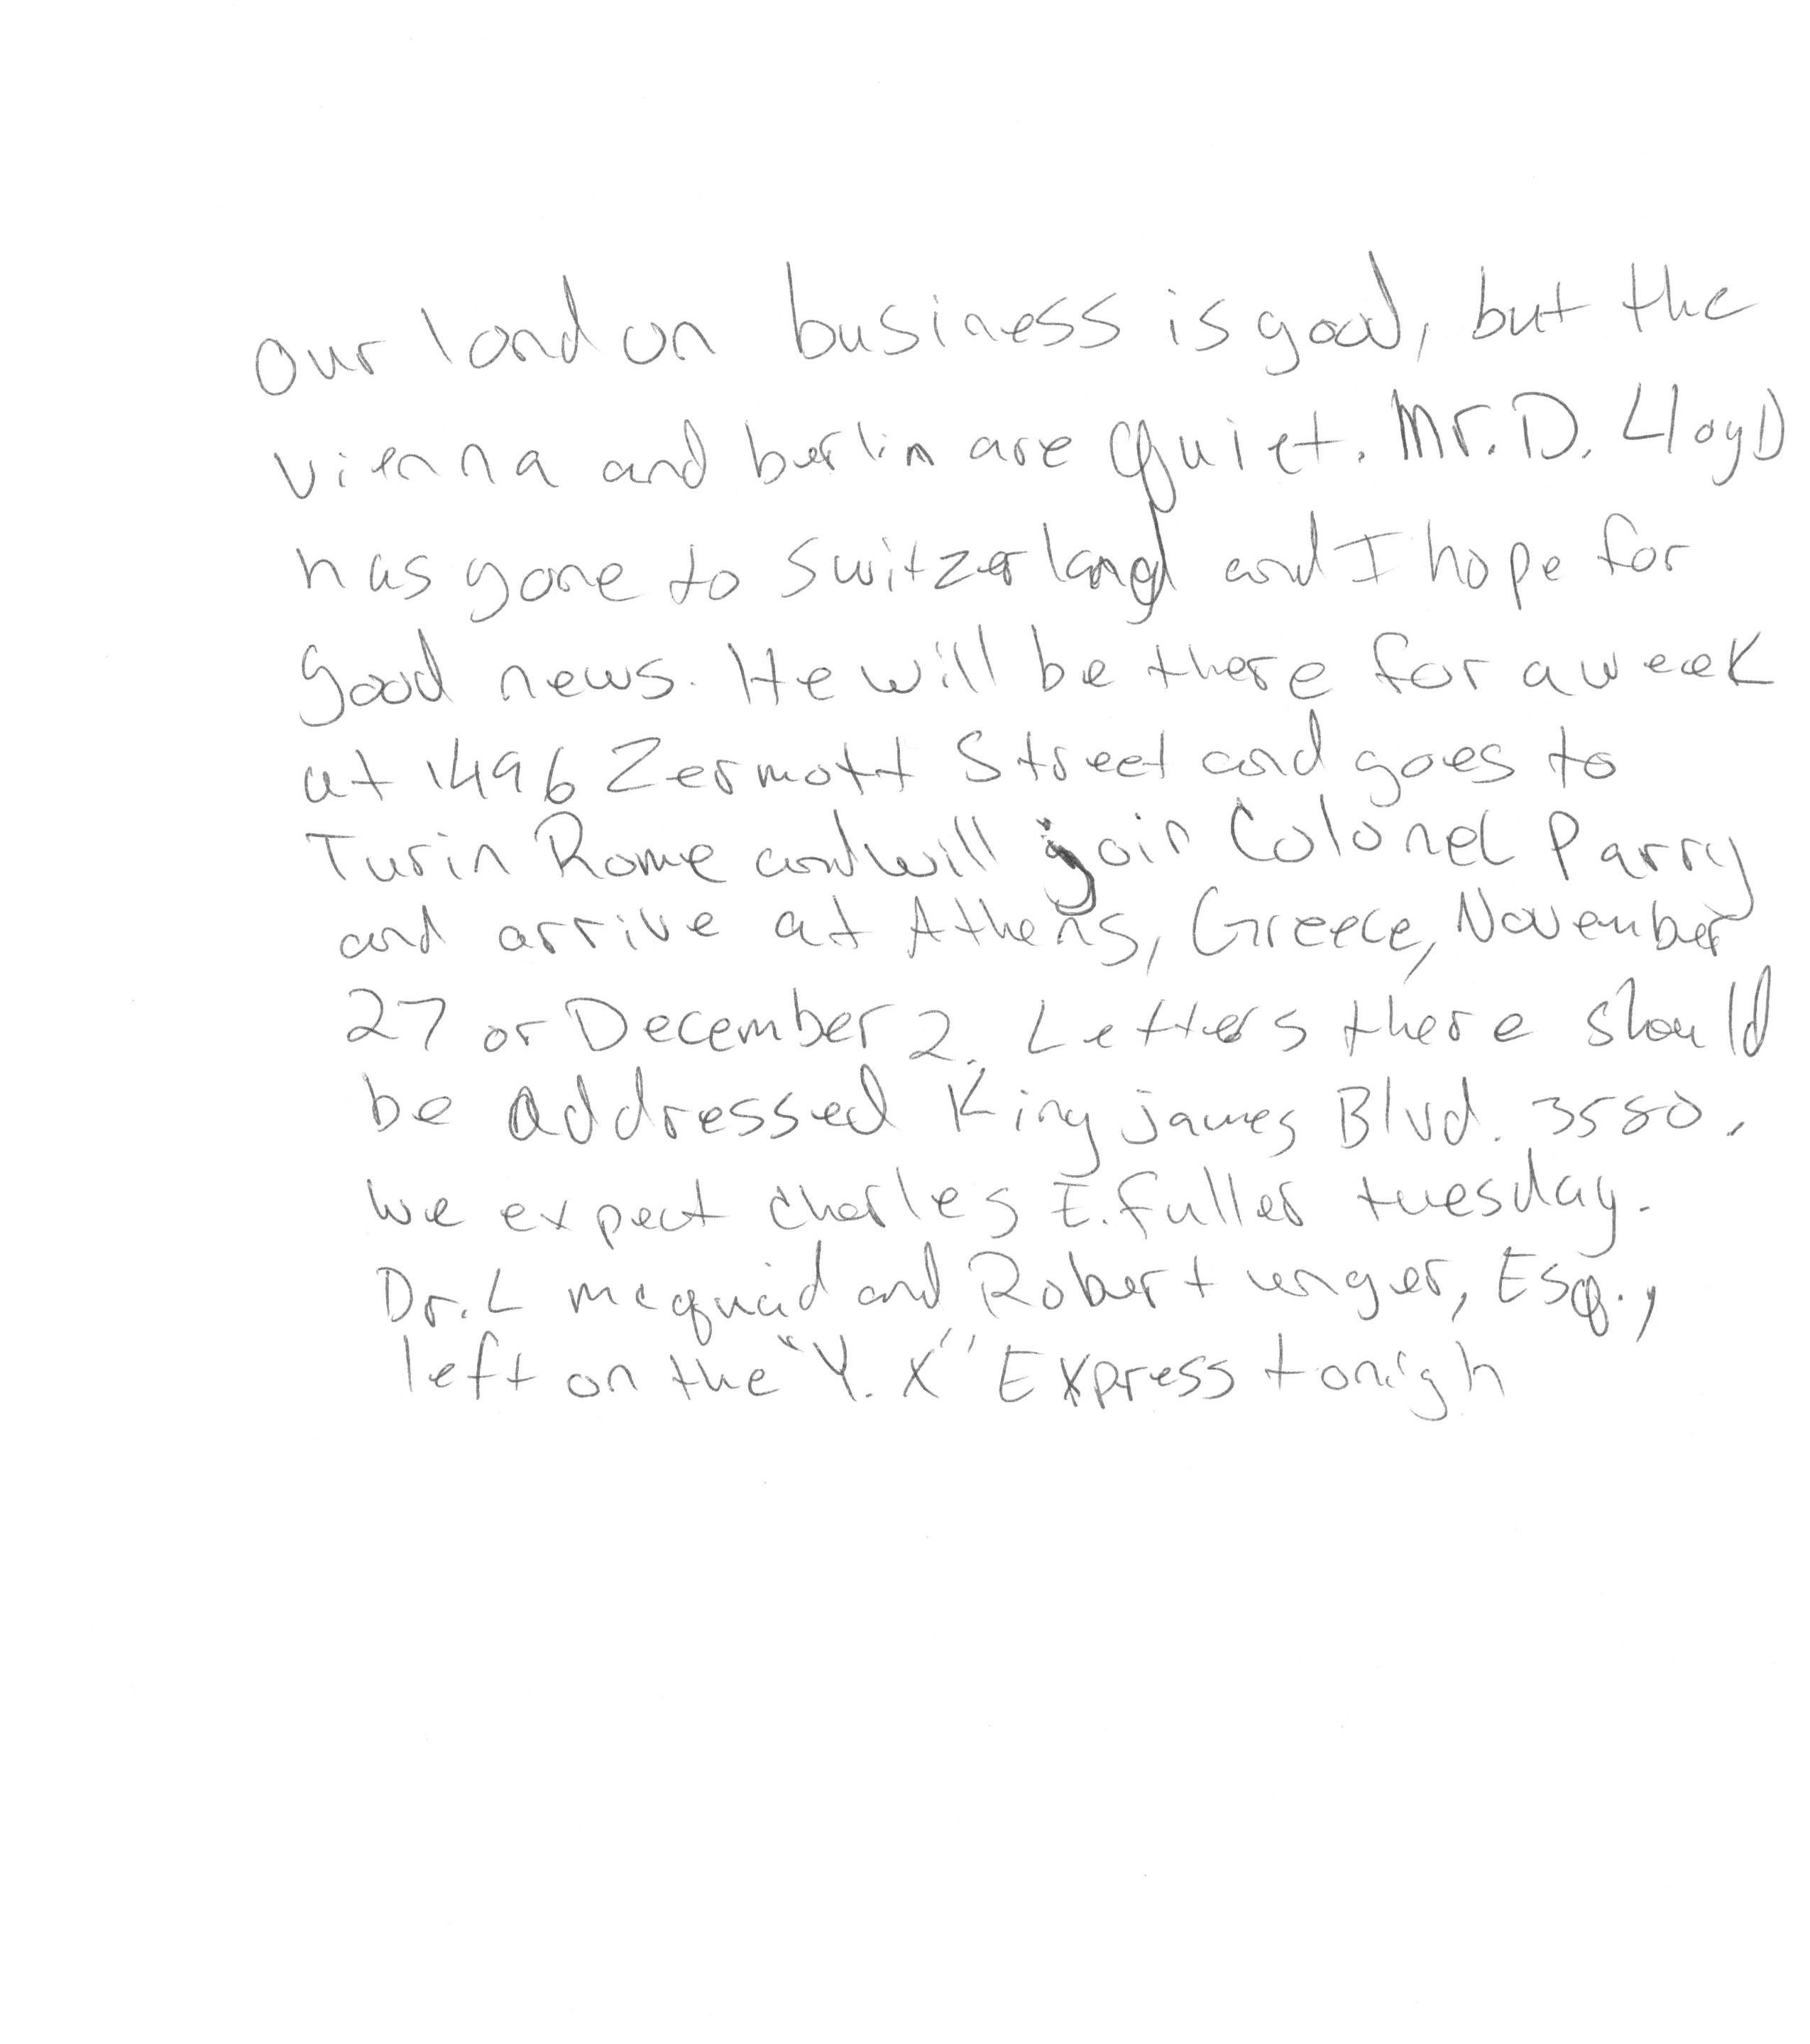 our london business is good, but the
vienna and berlin are quiet. Mr. D. LloyD
has gone to switzerland and I hope for
good news. He will be there for a week
at 1496 Zermott Street and goes to
Turin Rome and will join Colonel Parry
and arrive at Athens, Greece, November
27 or December 2. Letters there should
be addressed King james Blvd. 3580.
we expect charles E. fuller tuesday.
Dr. L mcquaid and Robert unger, Esq.,
left on the "Y. X" Express tonigh